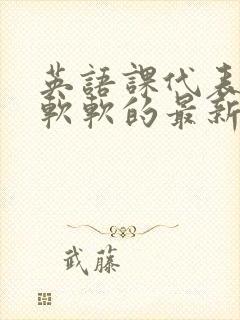 英語課代表
軟軟的最新
武藤